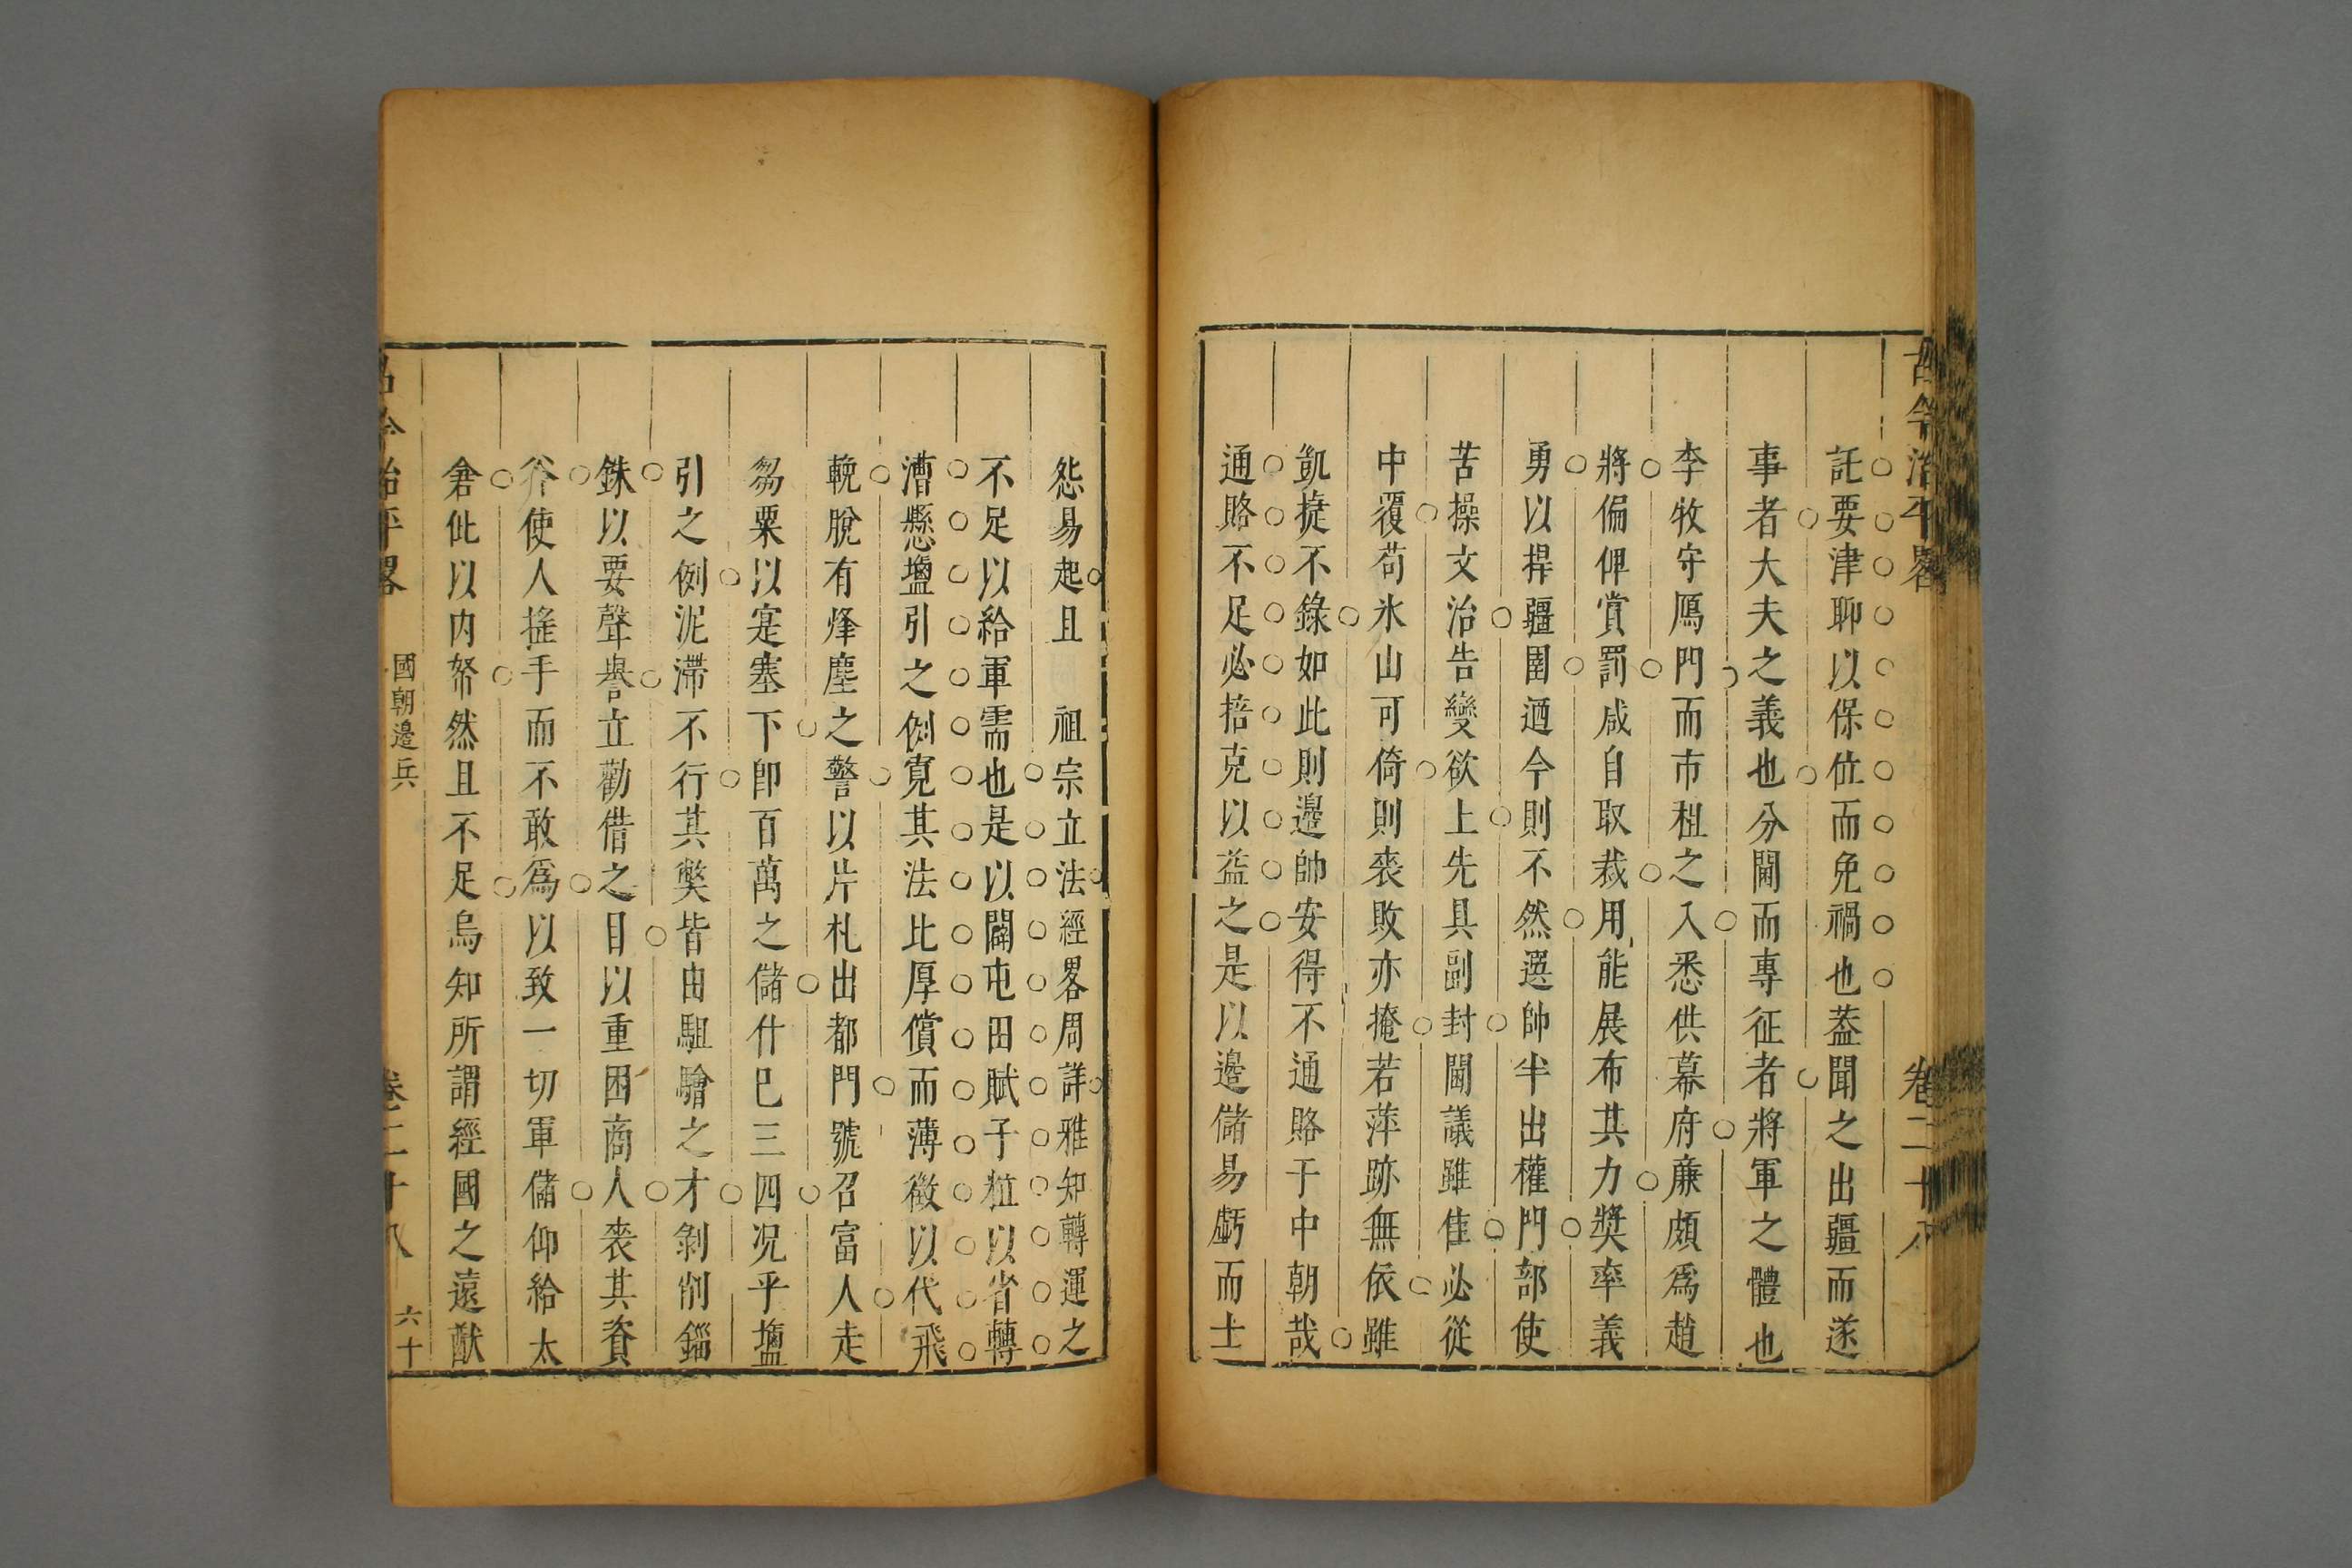 古今治平畧 卷二十八
託要津聊以保位而免禍也葢聞之出疆而遂
事者大夫之義也分閫而專征者將軍之體也
李牧守鴈門而市租之入悉供幕府廉頗爲趙
將偏俾賞罰咸自取裁用能展布其力獎率義
勇以捍疆圉迺今則不然選帥半出權門部使
苦操文治告變欲上先具副封閫議雖佳必從
中覆苟氷山可倚則喪敗亦掩若萍跡無依雖
凱捷不錄如此則邊帥安得不通賂于中朝哉
通賂不足必掊克以益之是以邊儲易虧而士
怨易起且 祖宗立法經畧周詳雅知轉運之
不足以給軍需也是以闢屯田賦子粒以省轉
漕懸鹽引之例寬其法比厚償而薄徵以代飛
輓脫有烽塵之警以片札出都門號召富人走
芻粟以寔塞下卽百萬之儲什巳三四况乎鹽
引之例泥滯不行其獘皆由駔驓之才剝削錙
銖以要聲譽立勸借之目以重困商人喪其資
斧使人搖手而不敢爲以致一切軍儲仰給太
倉仳以内帑然且不足烏知所謂經國之遠猷
古今治平畧 國朝邊兵 卷二十八 六十